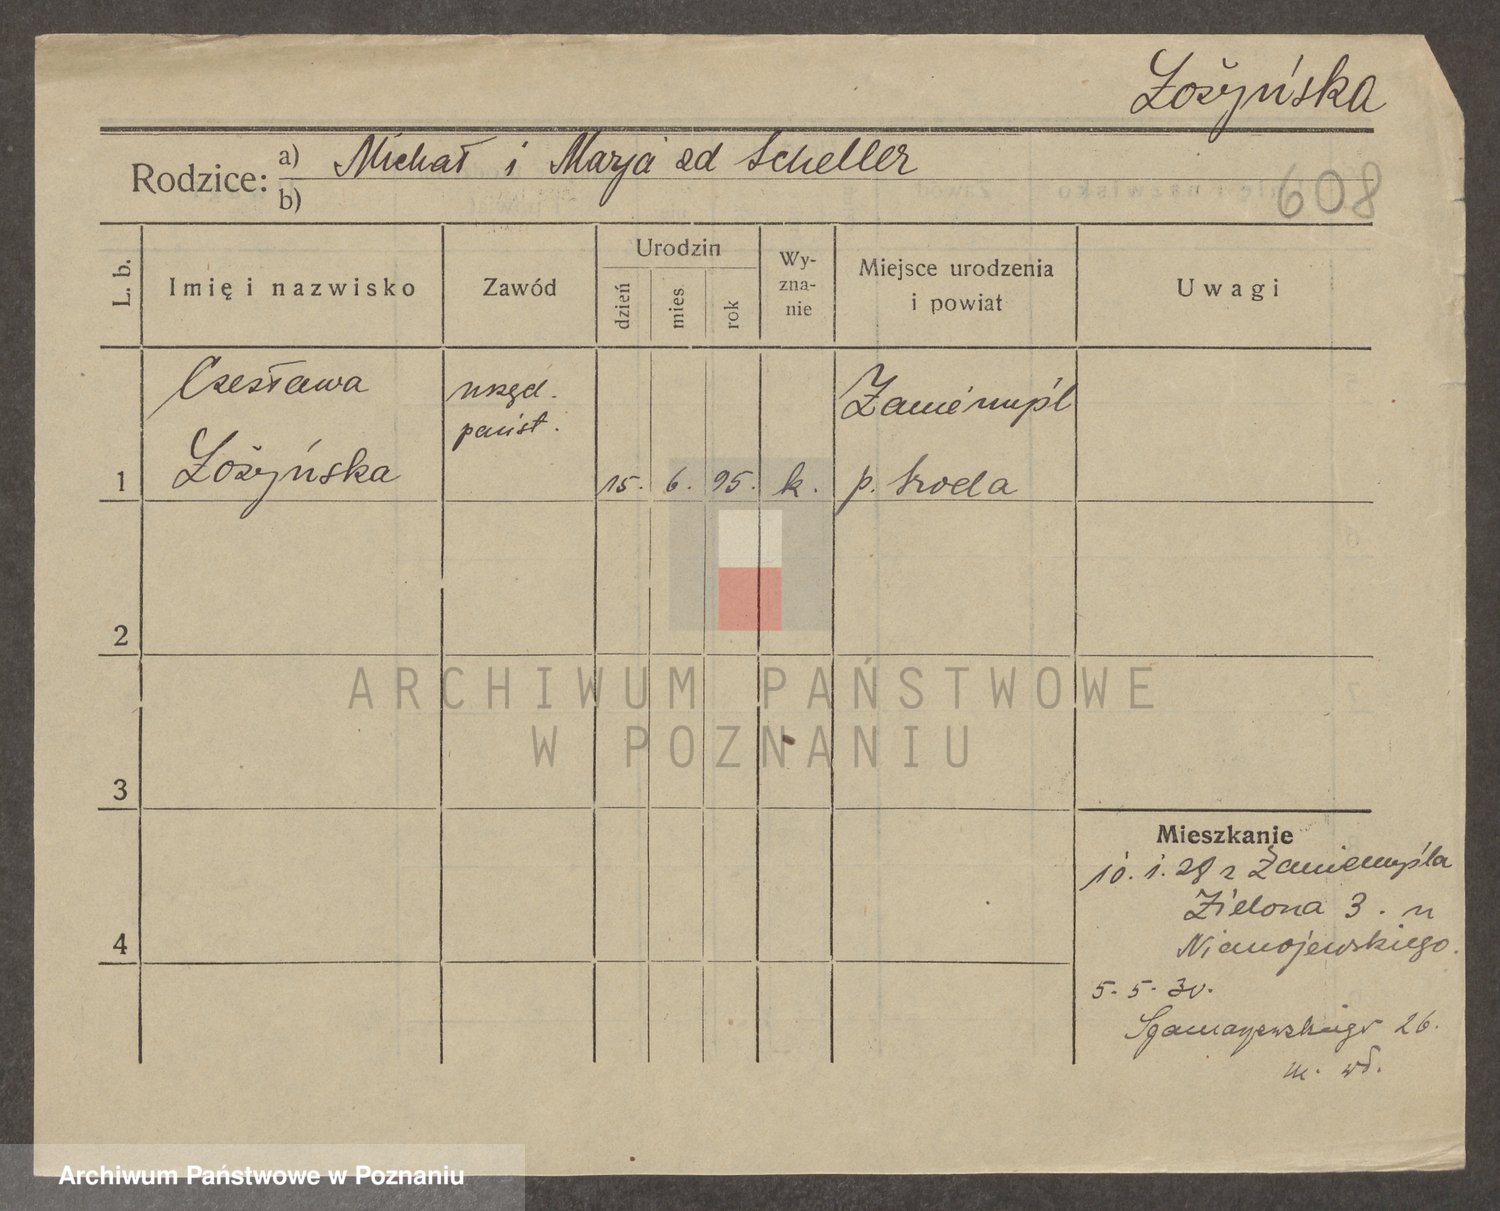 Łożyńska
Rodzice: a) Michał i Marja zd Scheller
b)
608
L. b.
Imię i nazwisko
Zawód
Urodzin
dzień
mies.
rok
Wy-
zna-
nie
Miejsce urodzenia
i powiat
Uwagi
Czesława
urzęd.
państ.
Zaniemyśl
1
Łożyńska
15. 6. 95. k. p. Środa
2
ARCHIWUM PAŃSTWOWE
W POZNANIU
3
Mieszkanie
10. 1. 28 z Zaniemyśla
Zielona 3. u
Niemojewskiego.
4
5. 5. 30.
26.
m. wł.
Archiwum Państwowe w Poznaniu